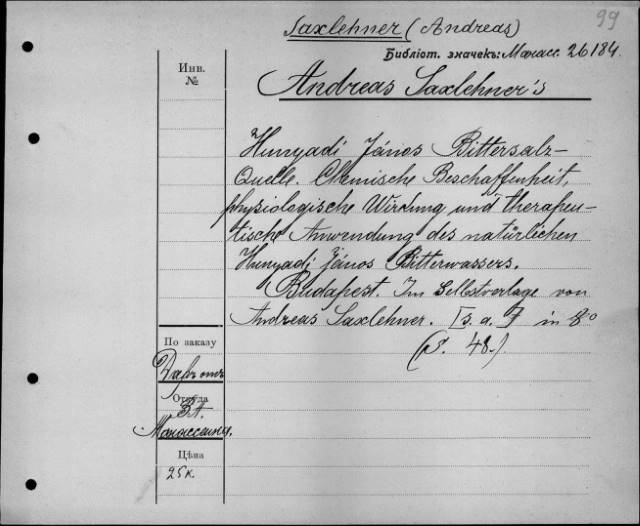 99
Saxlehner (Andreas)
Библіот. значекъ: Манасс. 26184.
Инв. №
Andreas Saxlehner's
Hunyadi János Bittersalz-
Quelle. Chemische Beschaffenheit,
physiologische Wirkung und therapeu-
tische Anwendung des natürlichen
Hunyadi János Bitterwassers.
Budapest. Im Selbstverlage von
Andreas Saxlehner. [s. a.] in 8°
(S. 48.)
По заказу
Даръ отъ
Откуда
Манассеина.
Цѣна
25 к.